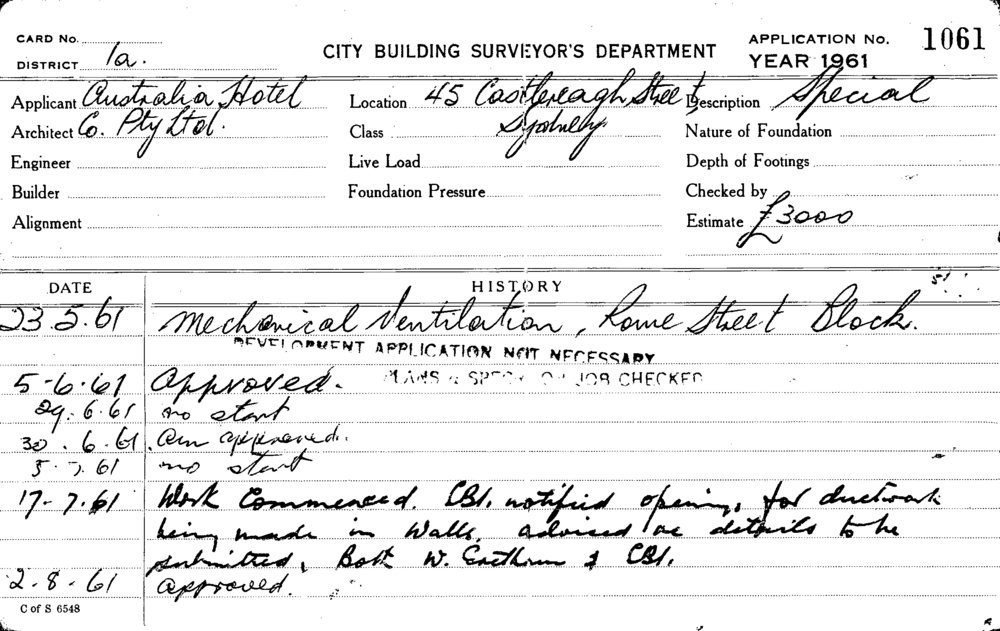 CARD No.
DISTRICT 1a.
CITY BUILDING SURVEYOR'S DEPARTMENT
APPLICATION No. 1061
YEAR 1961
Applicant Australia Hotel Location 45 Castlereagh Street Description Special
Architect Co. Pty Ltd. Class Sydney Nature of Foundation
Engineer Live Load Depth of Footings
Builder Foundation Pressure Checked by
Alignment Estimate £3000
DATE HISTORY
23.5.61 Mechanical Ventilation, Rowe Street Block.
DEVELOPMENT APPLICATION NOT NECESSARY
5-6.61 Approved. PLANS & SPECS ON JOB CHECKED
29.6.61 no start
30.6.61 Am approved.
5.7.61 no start
17-7.61 Work Commenced. CBI. notified openings for ductwork
being made in Walls. advised details to be
submitted, W. & CBI.
2-8-61 Approved.
C of S 6548